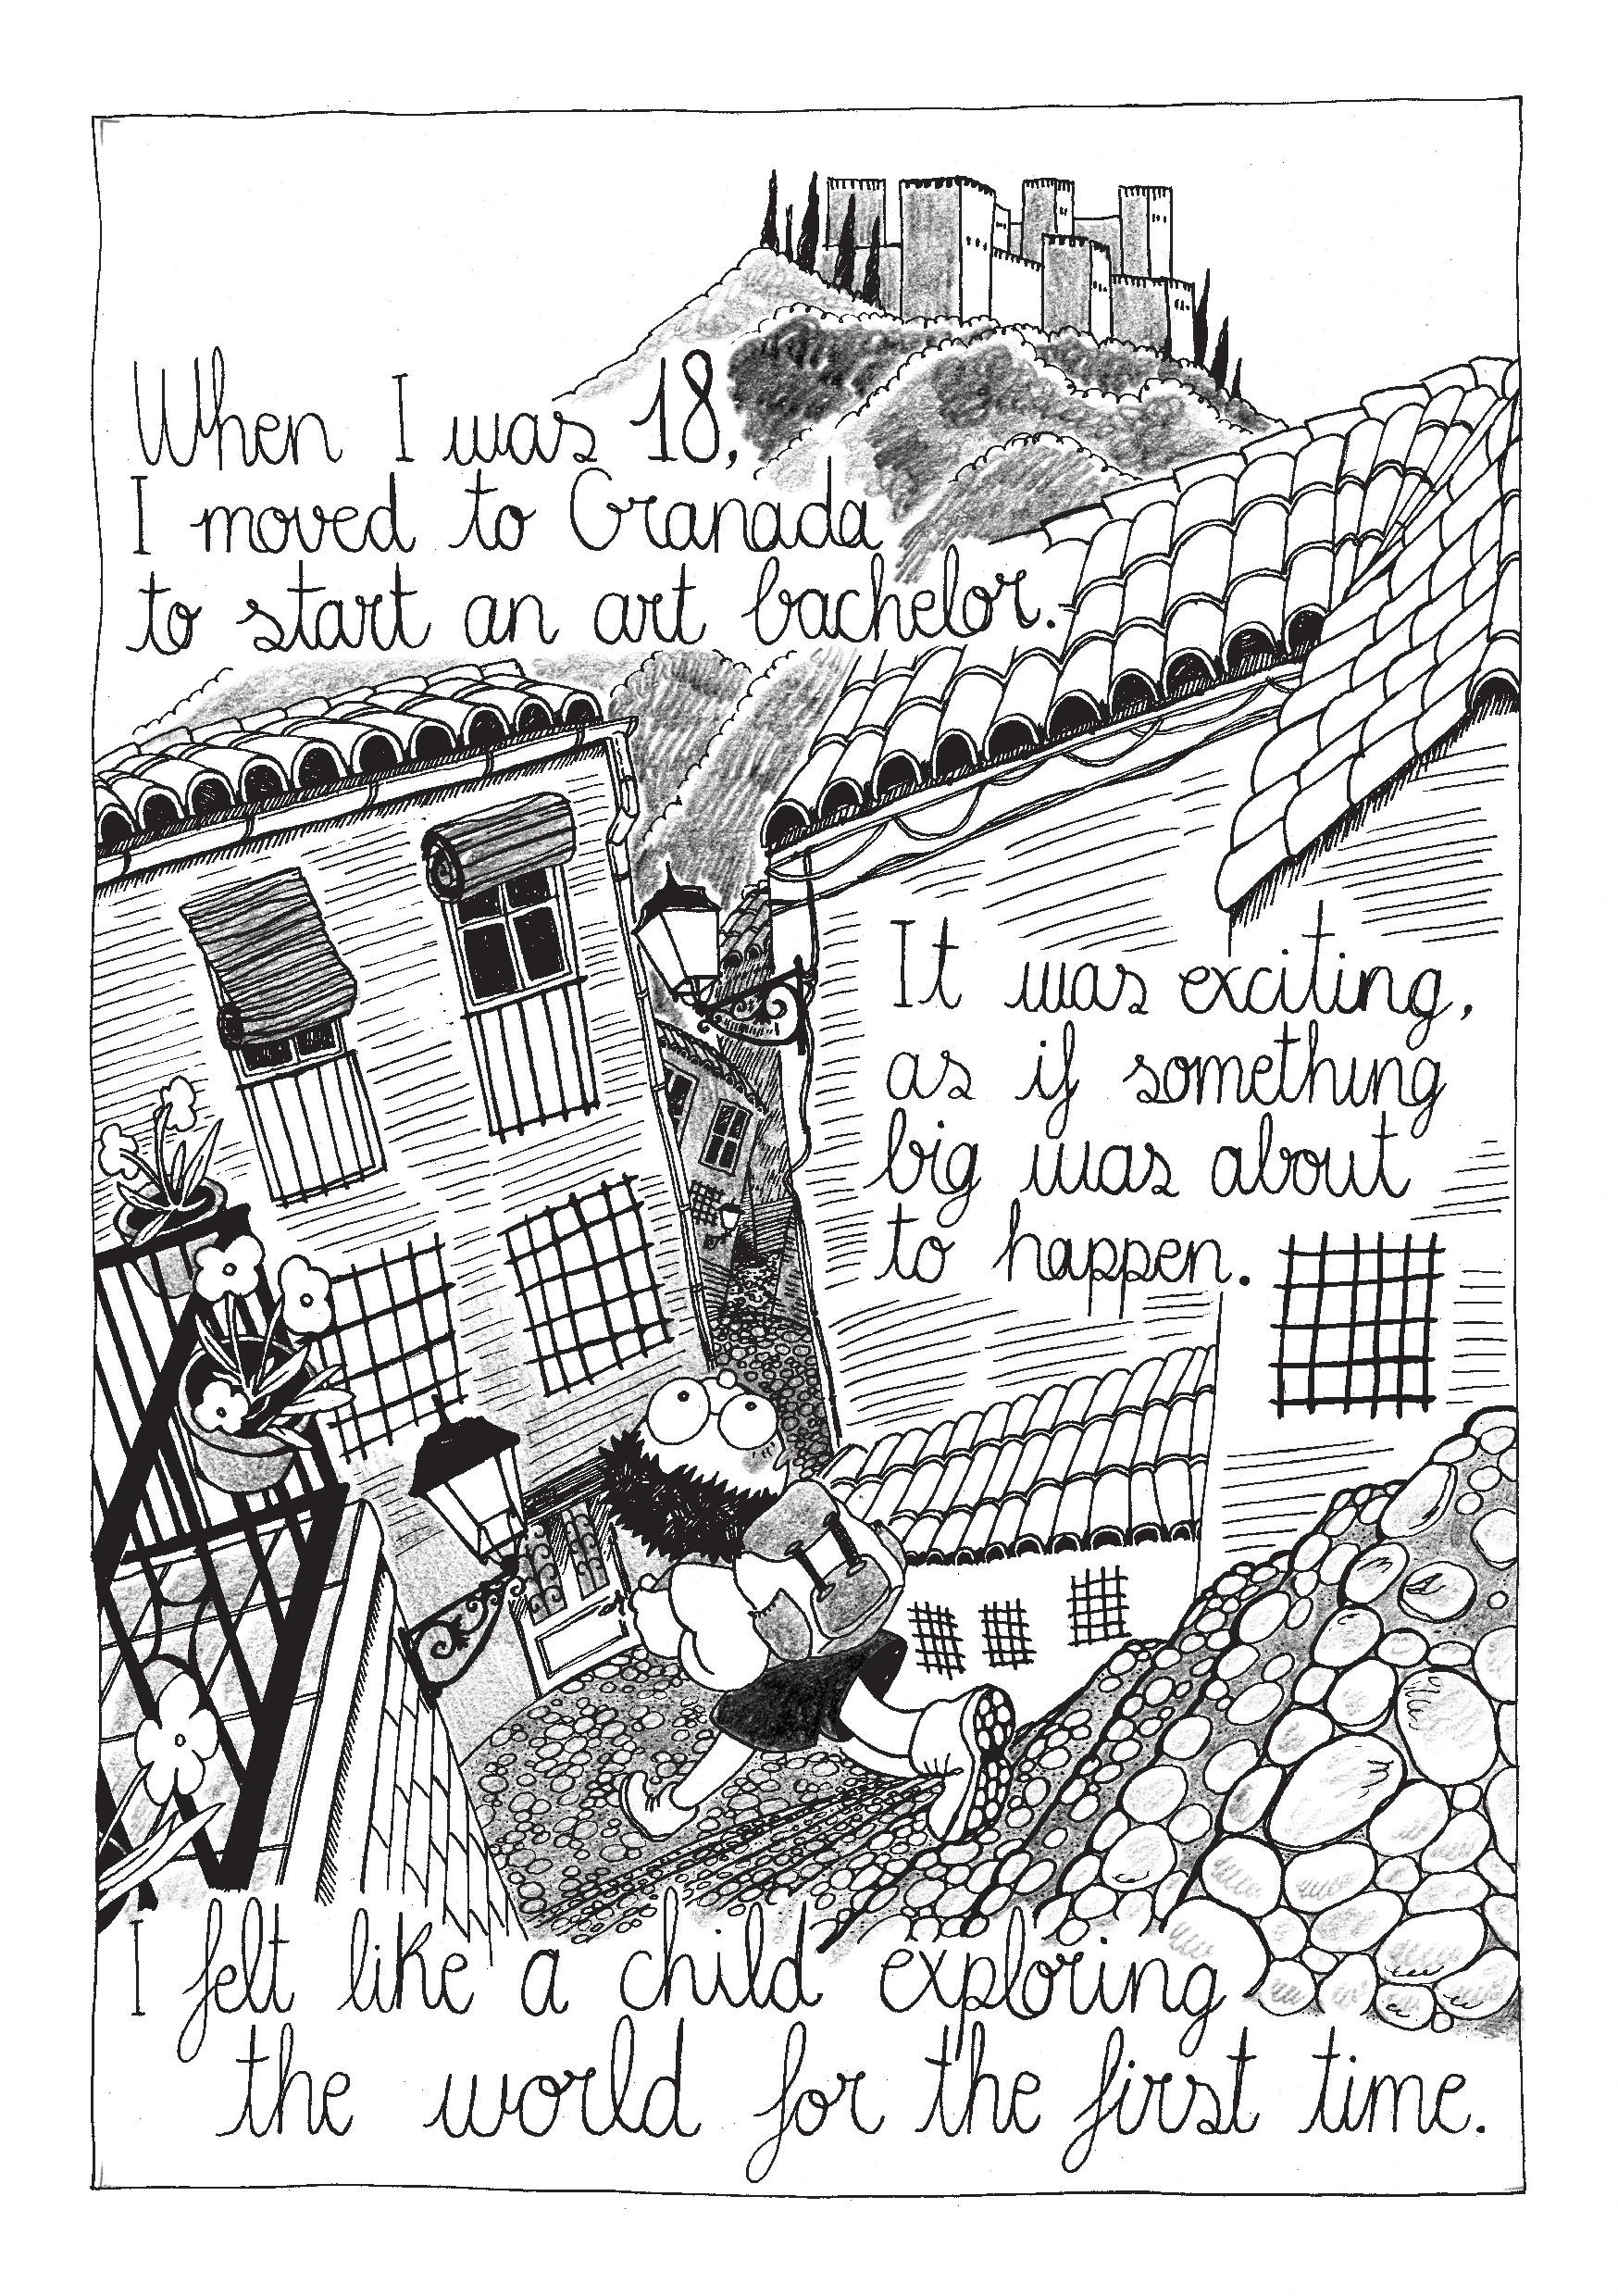 When I was 18,
I moved to Granada
to start an art bachelor.
It was exciting,
as if something
big was about
to happen.
I felt like a child exploring
the world for the first time.